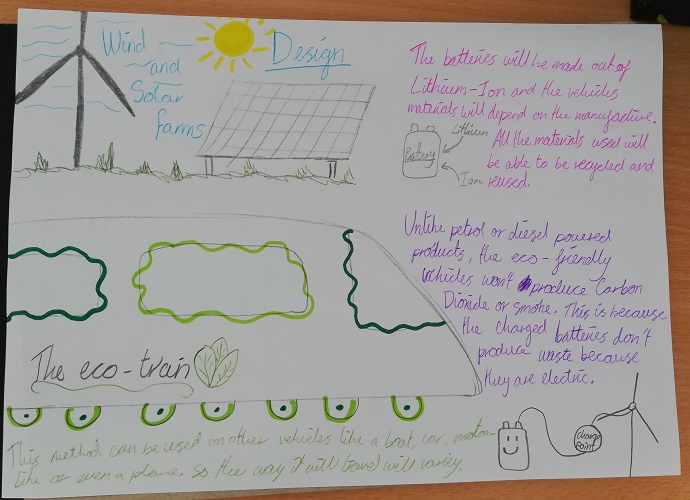 Wind
and
Solar
farms
Design
The batteries will be made out of
Lithium-Ion and the vehicles
materials will depend on the manufactive.
All the materials used will
be able to be recycled and
reused.
Battery
Lithium
Ion
Unlike petrol or diesel powered
products, the eco-friendly
vehicles won't produce Carbon
Dioxide or smoke. This is because
the charged batteries don't
produce waste because
they are electric.
The eco-train
Charge
Point
This method can be used on other vehicles like a boat, car, motor-
bike or even a plane. So the way it will travel will vary.